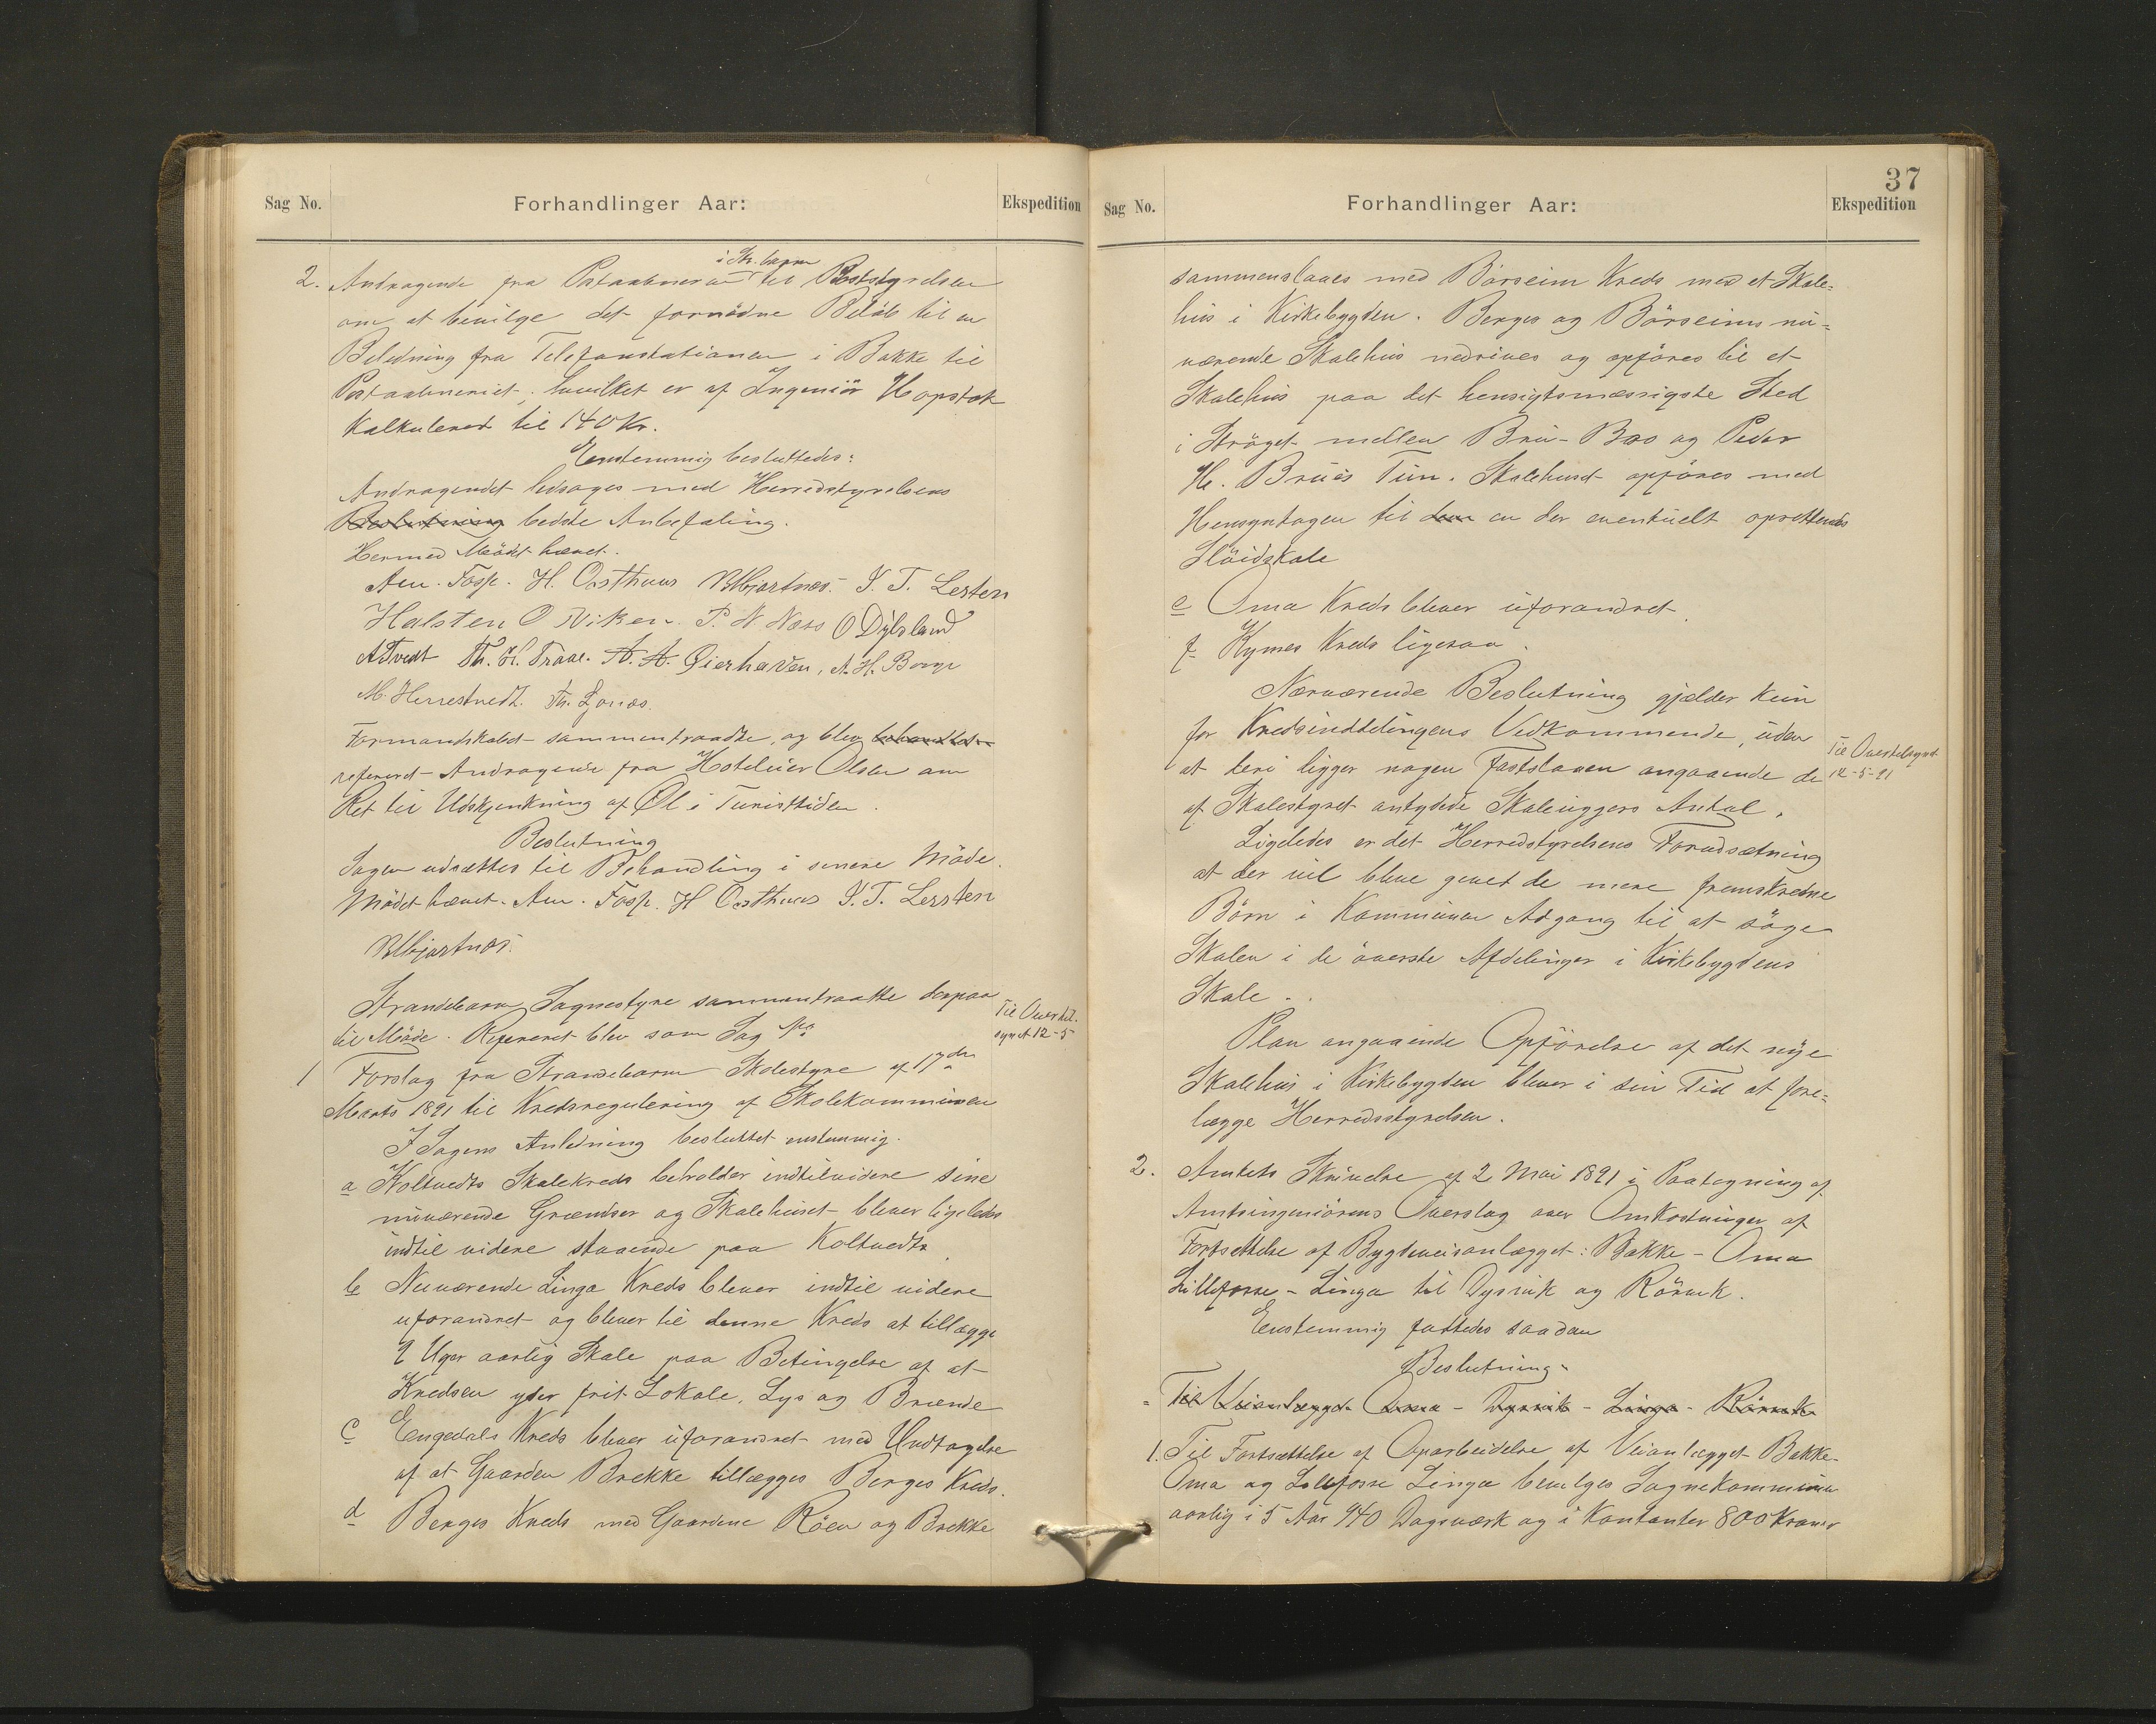 Sag No.
Forhandlinger Aar:
Ekspedition
2. Andragende fra Postaabneren i Str.barm til Poststyrelsen
om at bevilge det fornødne Beløb til en
Beledning fra Telefonstationen i Bakke til
Postaabneriet, hvilket er af Ingeniør Hopstok
kalkuleret til 140 Kr.
Enstemmig besluttedes:
Andragendet ledsages med Herredstyrelsens
Beslutning bedste Anbefaling.
Hermed Mødet hævet.
Am. Fosse. H. Oosthuus J. T. Lesten
Halsten O Viken. P. N. Næss O Dysland
A Tvedt Th. H. Traae. A. A. Øierhaven, A. H. Berge
M. Herrestvedt. Th. Ljonæs.
Formandskabet sammentraadte, og blev behandlet
refereret Andragende fra Hoteleier Olsen om
Ret til Udskjenkning af Øl i Turisttiden.
Beslutning
Sagen udsættes til Behandling i senere Møde.
Mødet hævet. Am. Fosse. H Oosthuus J. T. Lesten
Strandebarm Sognestyre sammentraadte derpaa
til Møde. Refereret blev som Sag No
Til Overtil-
synet 12-5
1 Forslag fra Strandebarm Skolestyre af 17de
Marts 1891 til Kredsregulering af Skolekommunen
I Sagens Anledning besluttet enstemmig.
a Koltvedts Skolekreds beholder indtilvidere sine
nuværende Grændser og Skolehuset bliver ligeledes
indtil videre staaende paa Koltvedt
b Nuværende Linga Kreds bliver indtil videre
uforandret og bliver til denne Kreds at tillægge
2 Uger aarlig Skole paa Betingelse af at
Kredsen yder frit Lokale, Lys og Brænde
c Engedals Kreds bliver uforandret med Undtagelse
af at Gaarden Brekke tillægges Berges Kreds.
d Berges Kreds med Gaardene Røen og Brekke
37
Sag No.
Forhandlinger Aar:
Ekspedition
sammenslaaes med Børseim Kreds med et Skole=
hus i Kirkebygden. Berges og Børseims nu=
værende Skolehus nedrives og opføres til et
Skolehus paa det hensigtsmæssigste Sted
i Strøget mellem Bru-Bro og Peder
H. Brues Tun. Skolehuset opføres med
Hensyntagen til den en der eventuelt oprettendes
Sløidskole
e Oma Kreds bliver uforandret.
f Kymes Kreds ligesaa.
Nærværende Beslutning gjælder kun
for Kredsinddelingens Vedkommende, uden
at deri ligger nogen Fastslaaen angaaende de
Til Overtilsynet
12-5-91
af Skolestyret antydede Skoleugers Antal.
Ligeledes er det Herredstyrelsens Forudsætning
at der vil blive givet de mere fremskredne
Børn i Kommunen Adgang til at søge
Skolen i de øverste Afdelinger i Kirkebygdens
Skole.
Plan angaaende Opførelse af det nye
Skolehus i Kirkebygden bliver i sin Tid at fore=
lægge Herredsstyrelsen.
2. Amtets Skrivelse af 2 Mai 1891 i Paategning af
Amtsingeniørens Overslag over Omkostninger af
Fortsættelse af Bygdeveisanlægget: Bakke - Oma
Lillefosse - Linga til Dysvik og Rørvik.
Enstemmig fattedes saadan
Beslutning.
Til Veianlægget Oma - Dysvik - Linga - Rørvik
1. Til Fortsættelse af Oparbeidelse af Veianlægget Bakke-
Oma og Lillefosse Linga bevilges Sognekommunen
aarlig i 5 Aar 440 Dagsværk og i Kontanter 800 Kroner